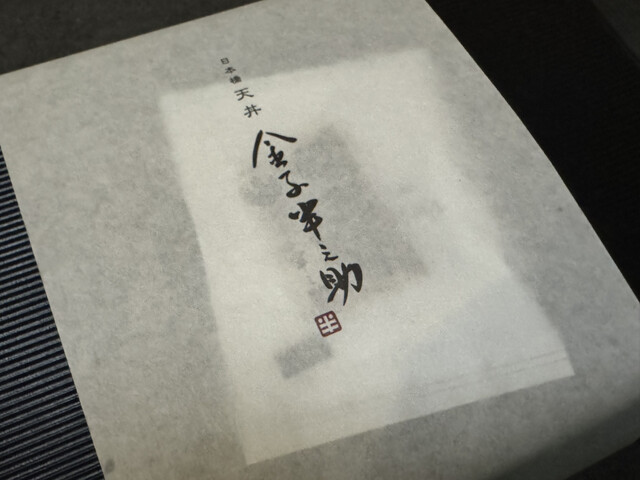 日本橋 天丼
金子半之助
半